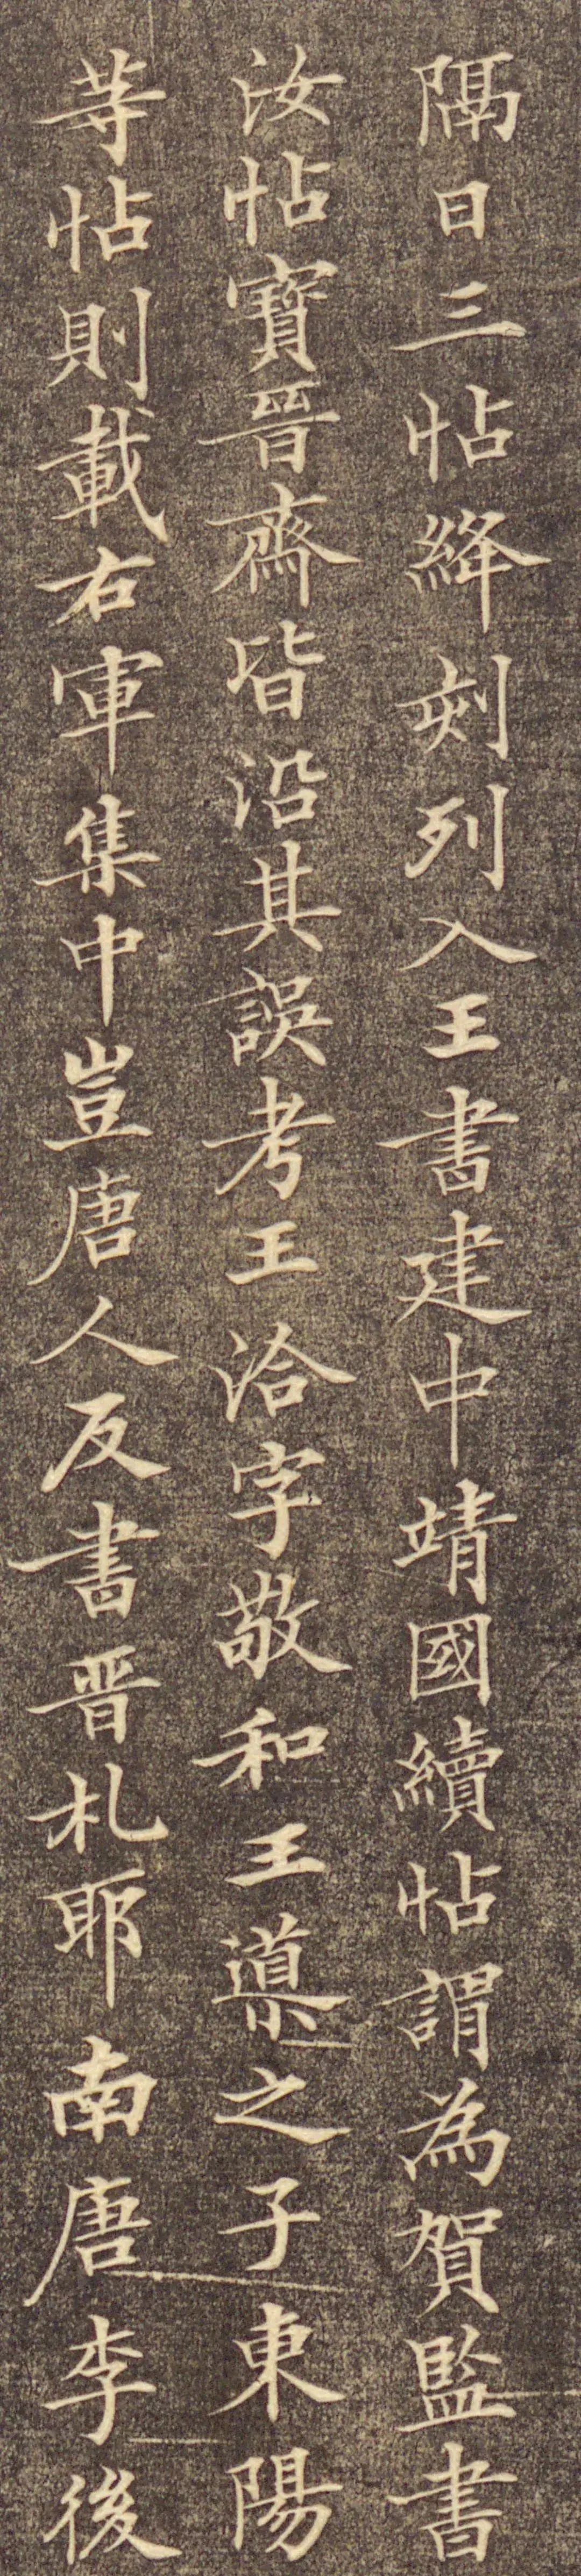 隔日三帖絳刻列入王書建中靖國續帖謂為賀監書
汝帖寶晉齋皆沿其誤考王洽字敬和王導之子東陽
等帖則載右軍集中豈唐人反書晉札耶南唐李後